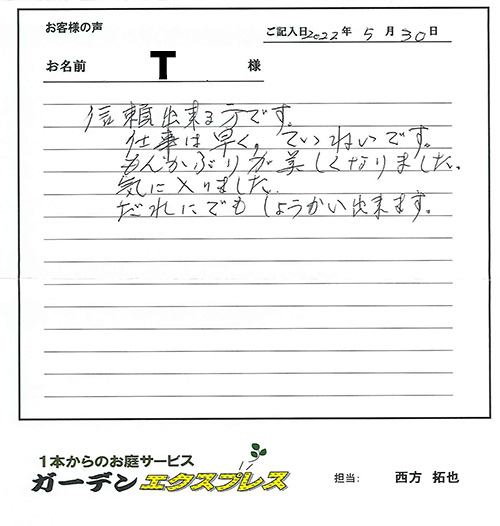 お客様の声
ご記入日2022年 5月30日
お名前 T 様
信頼出来る方です。
仕事は早く。ていねいです。
もんかぶりが美しくなりました。
気に入りました。
だれにでもしょうかい出来ます。
1本からのお庭サービス
ガーデンエクスプレス
担当: 西方 拓也